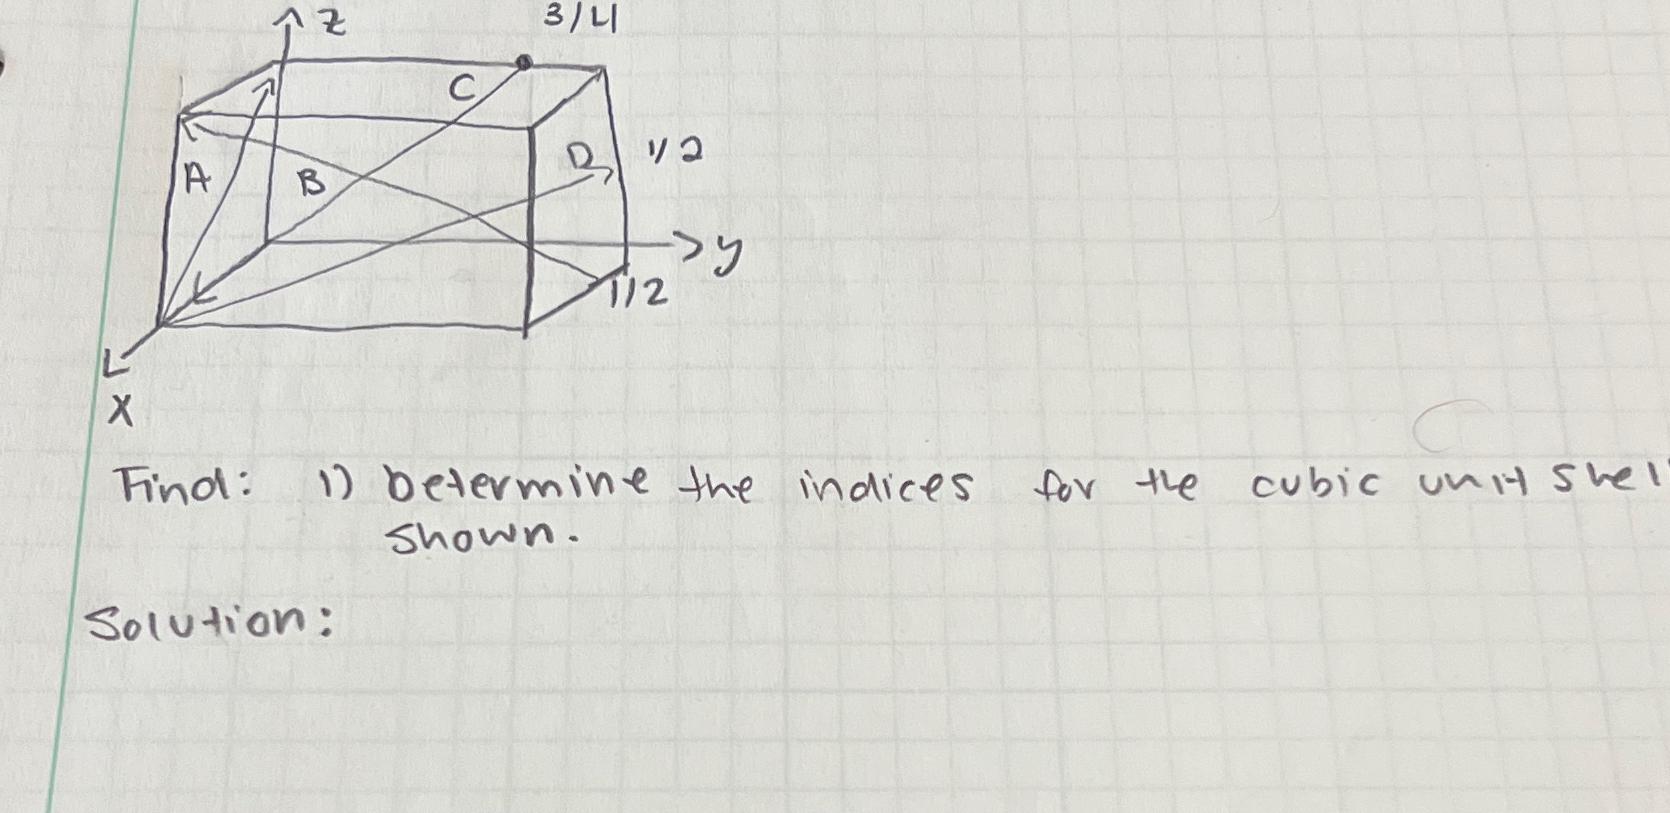 z 3/4
C
A B D 1/2
y
1/2
X
Find: 1) Determine the indices for the cubic unit shel
shown.
Solution: